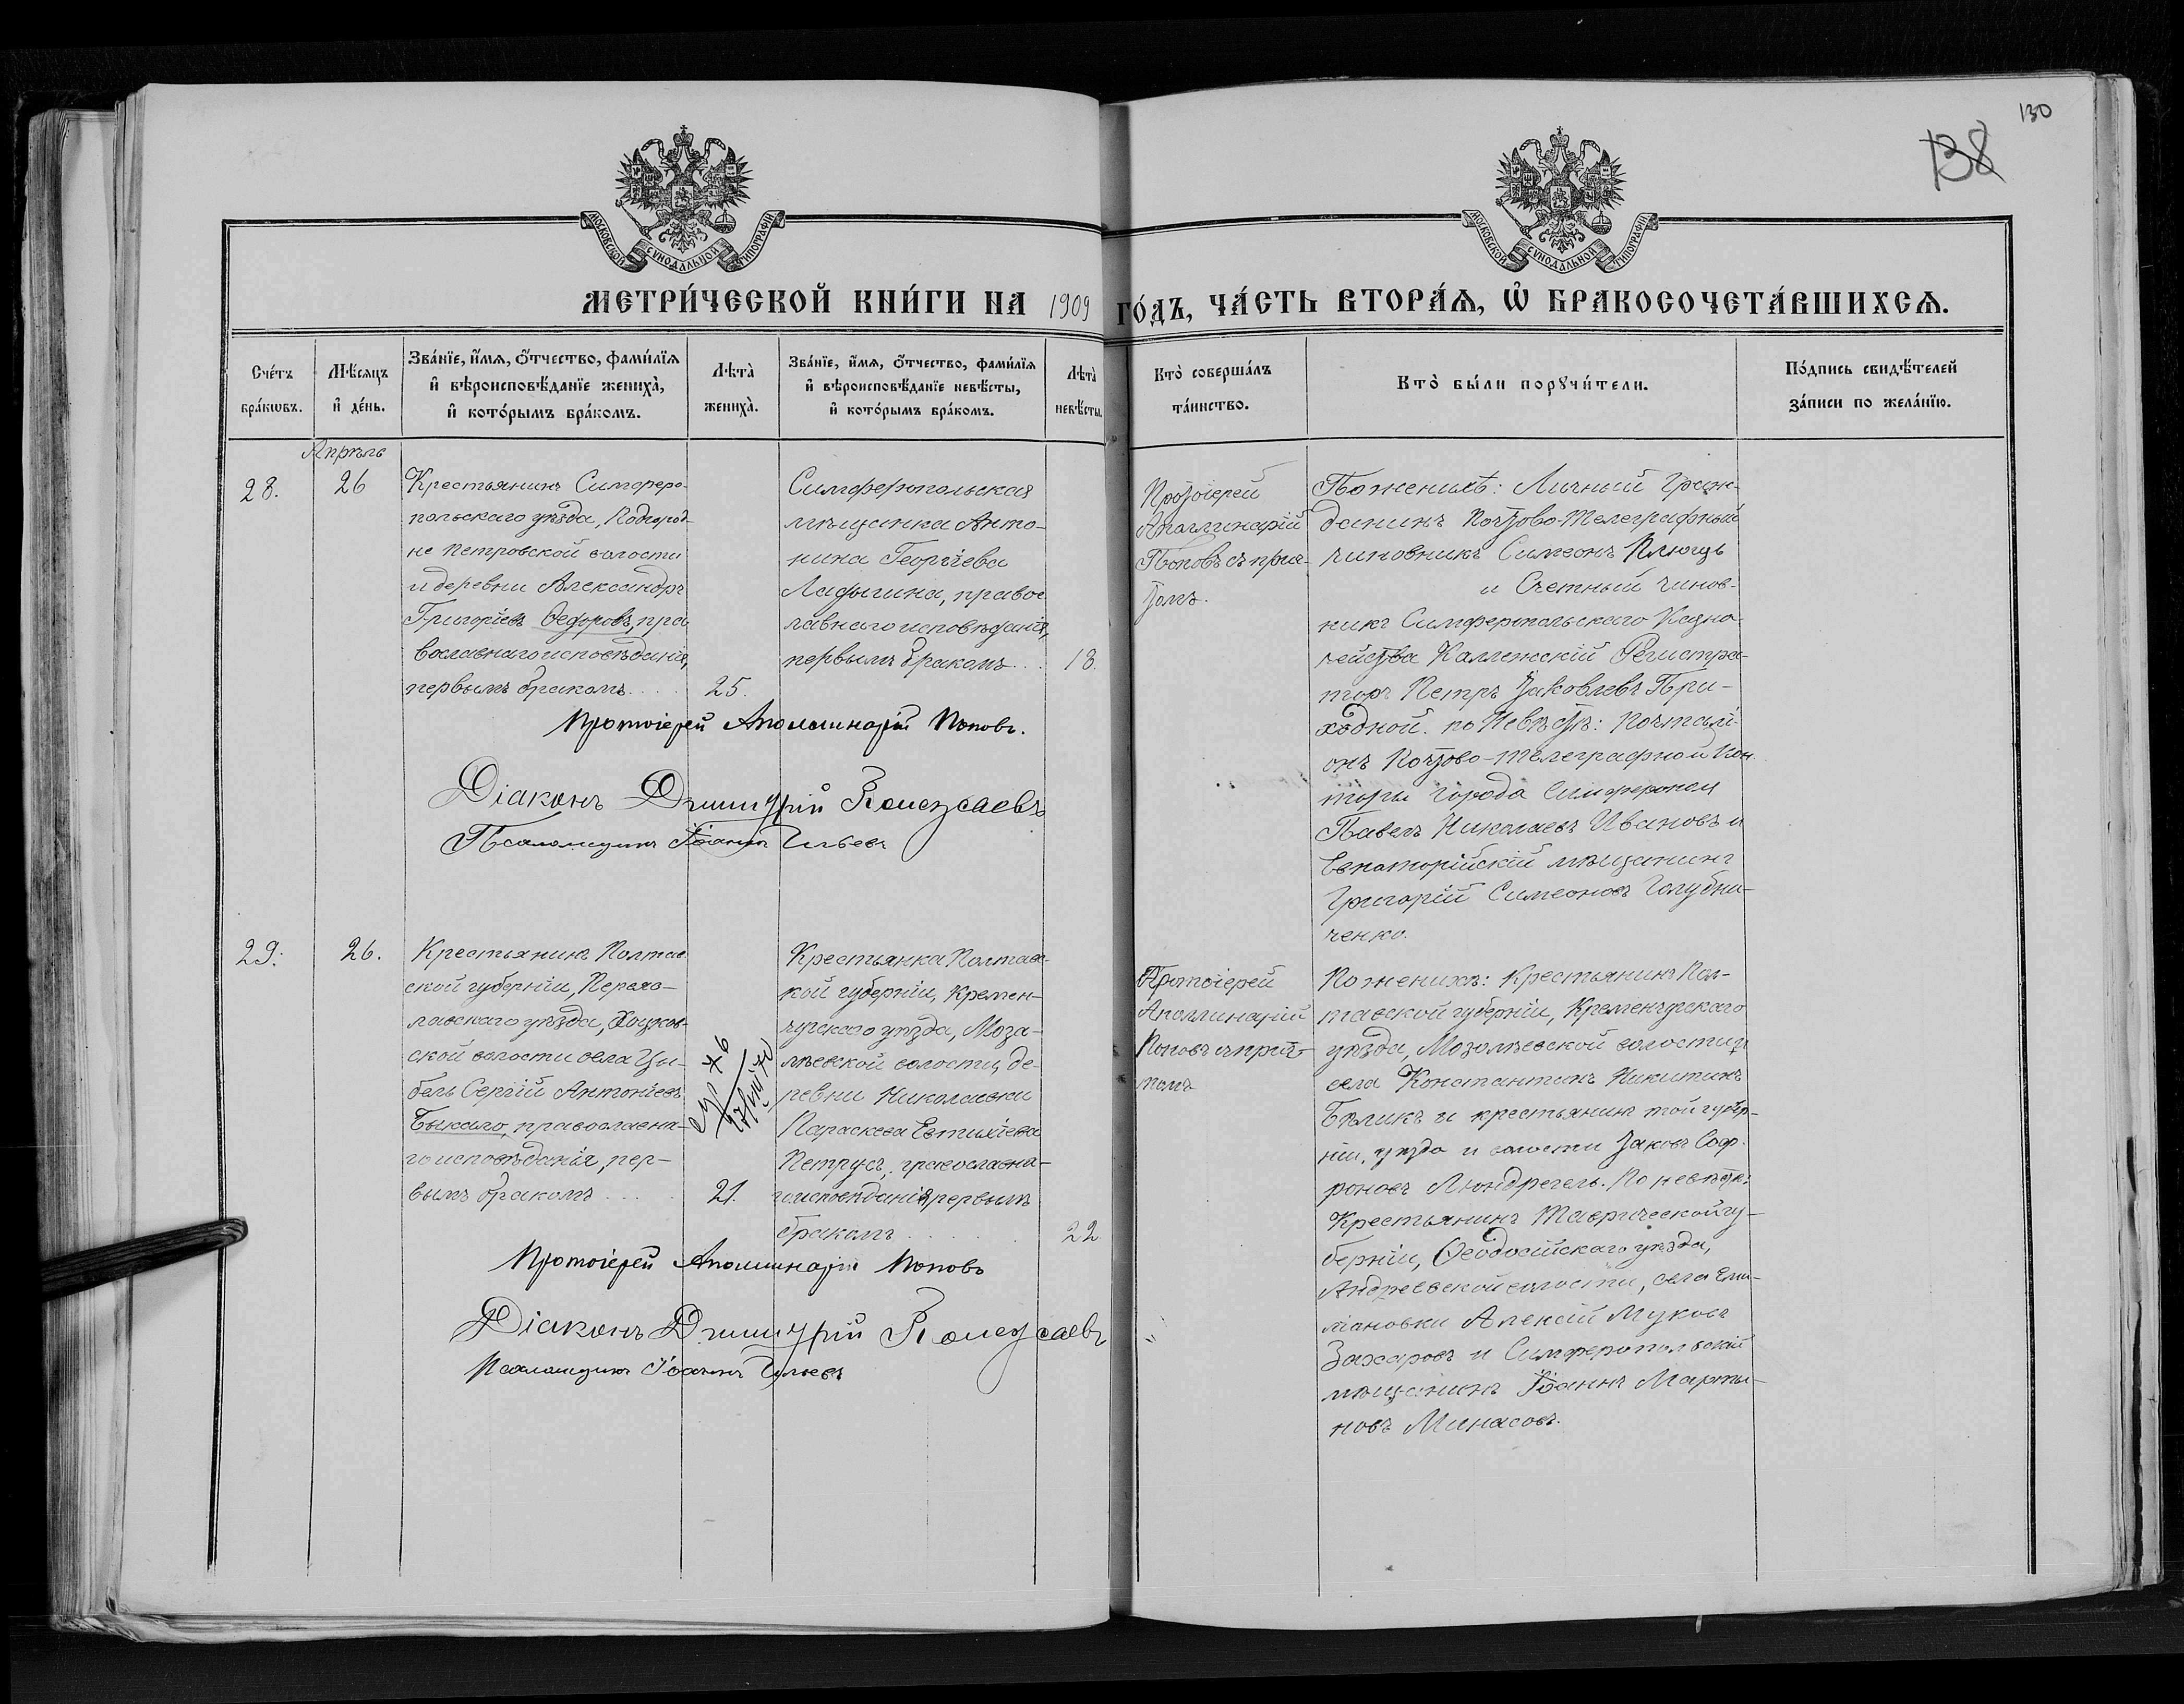 130
138
МОСКОВСКОЙ СѴНОДАЛЬНОЙ ТИПОГРАФІИ
МОСКОВСКОЙ СѴНОДАЛЬНОЙ ТИПОГРАФІИ
МЕТРИ́ЧЕСКОЙ КНИ́ГИ НА 1909 ГО́ДЪ, ЧА́СТЬ ВТОРА́Ѧ, Ѡ҆ БРАКОСОЧЕТА́ВШИХСѦ.
Сче́тъ
бра́кѡвъ.
Мѣ́сяцъ
и҆ де́нь.
Зва́нїе, и҆́мѧ, ѻ҆́тчество, фами́лїѧ
и҆ вѣроисповѣ́данїе женихà,
и҆ кото́рымъ бра́комъ.
Лѣ́та̀
женихà.
Зва́нїе, и҆́мѧ, ѻ҆́тчество, фами́лїѧ
и҆ вѣроисповѣ́данїе невѣ́сты,
и҆ кото́рымъ бра́комъ.
Лѣ́та̀
невѣ́сты.
Кто̀ соверша́лъ
та́инство.
Кто̀ бы́ли порꙋчи́тели.
По́дпись свидѣ́телей
за́писи по жела́нїю.
Апрѣль
28.
26
Крестьянинъ Симферо-
польскаго уѣзда, Подгород-
не Петровской волости
и деревни Александръ
Григоріевъ Ѳедоровъ, пра
вославнаго исповѣданія,
первымъ бракомъ....
25.
Симферопольская
мѣщанка Анто-
нина Георгіева
Лафыгина, правос
лавнаго исповѣданія,
первымъ бракомъ...
18.
Протоіерей
Аполлинарій
Поповъ съ прич-
томъ.
По женихѣ: Личный Граж-
данинъ Почтово-Телеграфный
чиновникъ Симеонъ Плющъ
и Счетный чинов-
никъ Симферопольскаго Казна-
чейства Коллежскій Регистра-
торъ Петръ Іаковлевъ При-
ходной. по Невѣстѣ: Почтальі-
онъ Почтово-Телеграфной Кон
торы города Симферополя
Павелъ Николаевъ Ивановъ и
Евпаторійскій мѣщанинъ
Григорій Симеоновъ Голубни-
ченко.
Протоіерей Аполлинарій Поповъ.
Діаконъ Димитрій
Псаломщикъ Іоаннъ Ильевъ
29.
26.
Крестьянинъ Полтав
ской губерніи, Переяс-
лавскаго уѣзда, Хоцков-
ской волости села Цы-
бель Сергій Антоніевъ
Быкало, православна-
го исповѣданія, пер-
вымъ бракомъ....
21.
Крестьянка Полтавс-
кой губерніи, Кремен-
чугскаго уѣзда, Моза-
лѣевской волости, де-
ревни Николаевки
Параскева Евтихіева
Петрусь, православна-
го исповѣданія, первымъ
бракомъ.......
22
Протоіерей
Аполлинарій
Поповъ съ прич-
томъ
По женихѣ: Крестьянинъ Пол-
тавской губерніи, Кременчугскаго
уѣзда, Мозолѣевской волости и
села Константинъ Никитинъ
Бѣликъ и крестьянинъ той губер-
ніи, уѣзда и волости Іаковъ Соф-
роновъ Люндрегель. По невѣстѣ:
Крестьянинъ Таврической гу-
берніи, Ѳеодосійскаго уѣзда,
Андреевской волости, села Еми-
ліановки Алексій Муковъ
Захаровъ и Симферопольскій
мѣщанинъ Іоаннъ Марты-
новъ Минасовъ.
Протоіерей Аполлинарій Поповъ
Діаконъ Димитрій
Псаломщикъ Іоаннъ Ильевъ